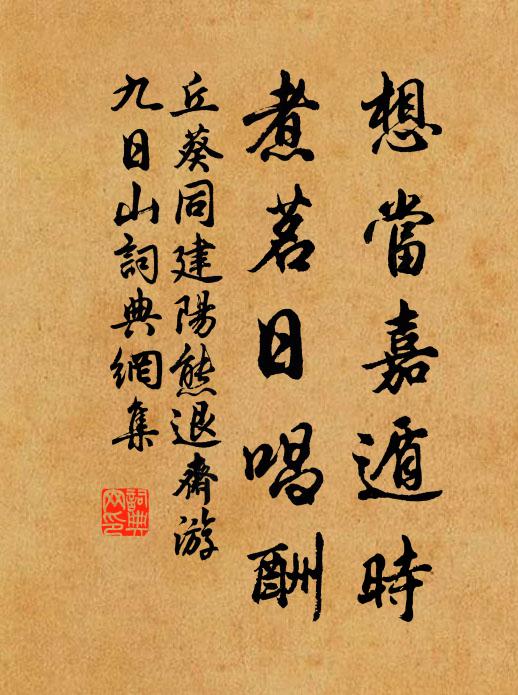 想當嘉遁時
煮茗日唱酬
丘葵同建陽熊退齋游
九日山詞典網集
詞典
网印